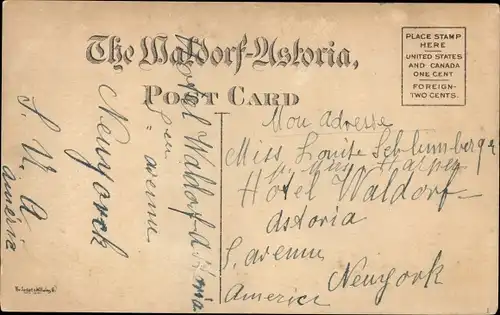 The Waldorf-Astoria,
POST CARD
PLACE STAMP
HERE
UNITED STATES
AND CANADA
ONE CENT
FOREIGN-
TWO CENTS.
Mon adresse
Miss Louise Schlumberger
Hôtel Waldorf
Astoria
5. avenue
Newyork
America
Hôtel Waldorf Astoria
avenue
Newyorck
S. U. A
América